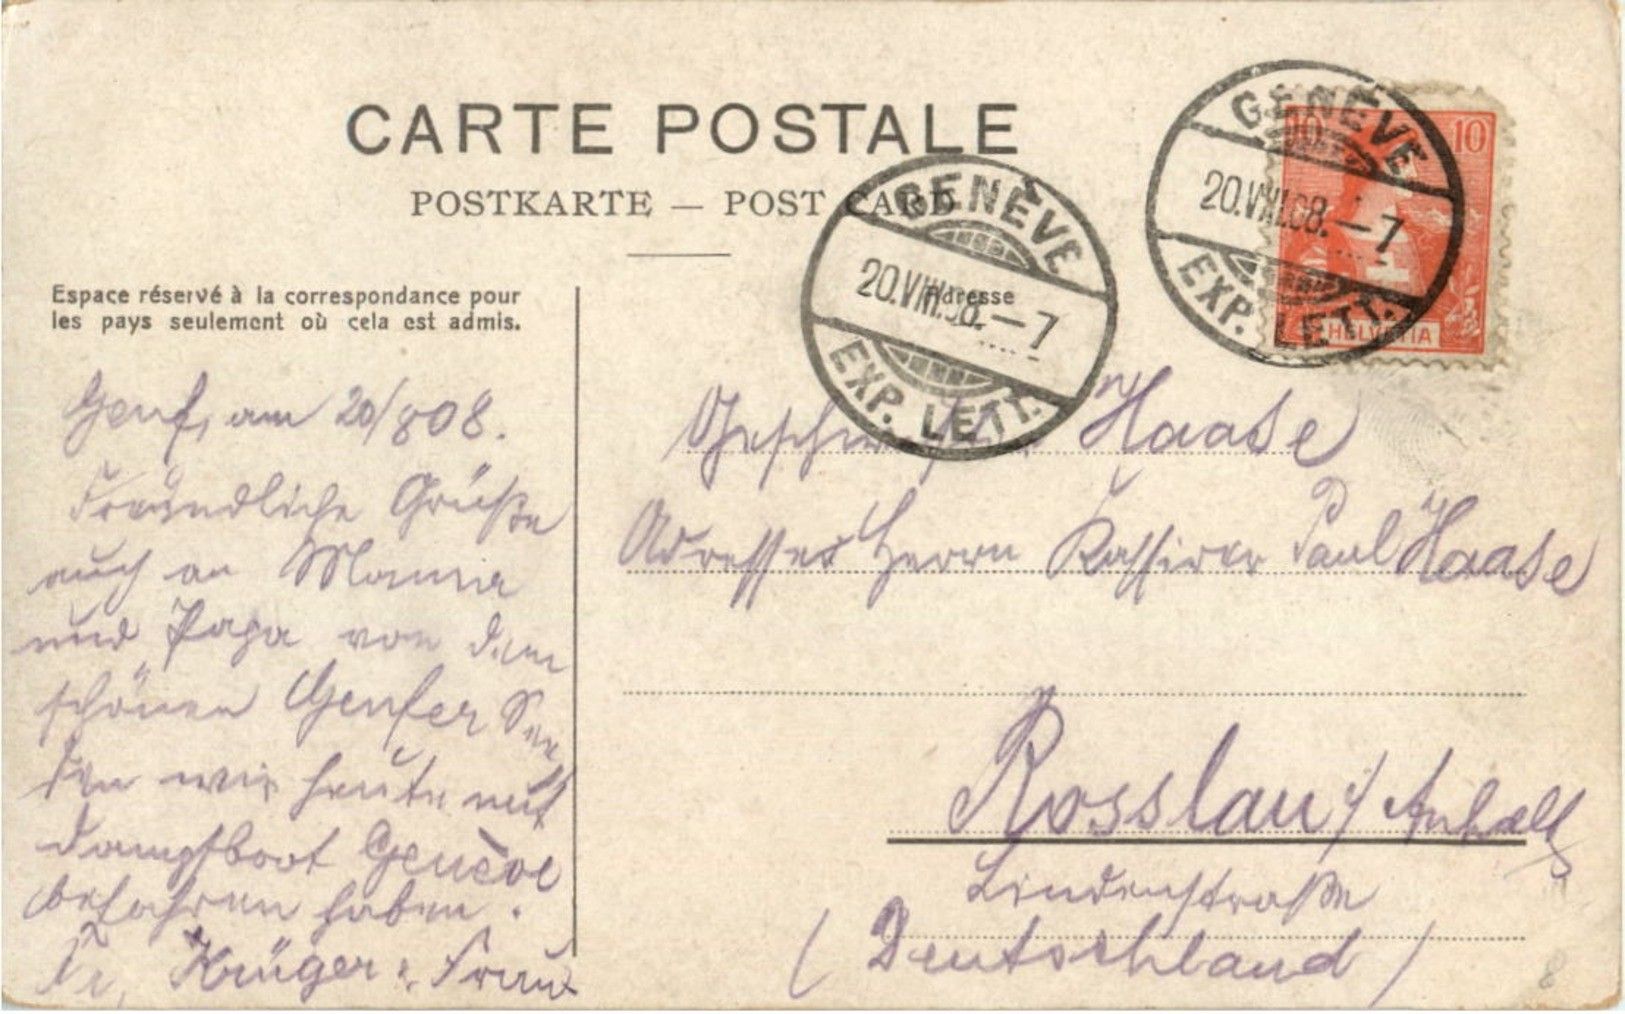 CARTE POSTALE
POSTKARTE — POST CARD
GENÈVE
20.VIII.08.–7
EXP. LETT.
GENÈVE
20.VIII.08.–7
EXP. LETT.
10
10
HELVETIA
Espace réservé à la correspondance pour
les pays seulement où cela est admis.
Adresse
Genf, am 20/8 08.
Freundliche Grüße
auch an Mama
und Papa von dem
schönen Genfer See
den wir heute mit
Dampfboot Genève
befahren haben.
Fr. Krüger u. Frau
Haase
Herrn Kassirer Paul Haase
Rosslau / Anhalt
Lindenstraße
(Deutschland)
8